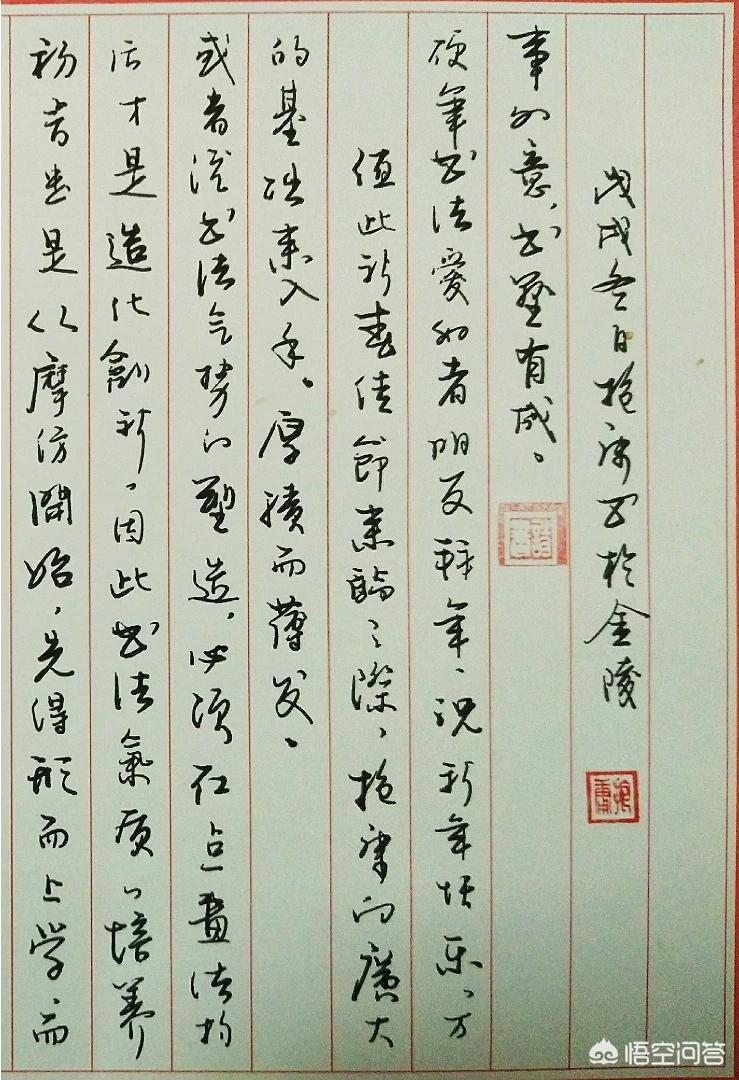 是从摩仿開始，先得形而上学，而
后才是造化創新，因此书法氣质的培养
或者说书法气势的塑造，必须在点畫结构
的基础来入手。厚積而薄发。
值此新春佳節来臨之際，抱庸向廣大
硬笔书法爱好者朋友拜年，祝新年快乐，万
事如意，书艺有成。
戊戌冬日抱庸书於金陵
抱庸
悟空问答